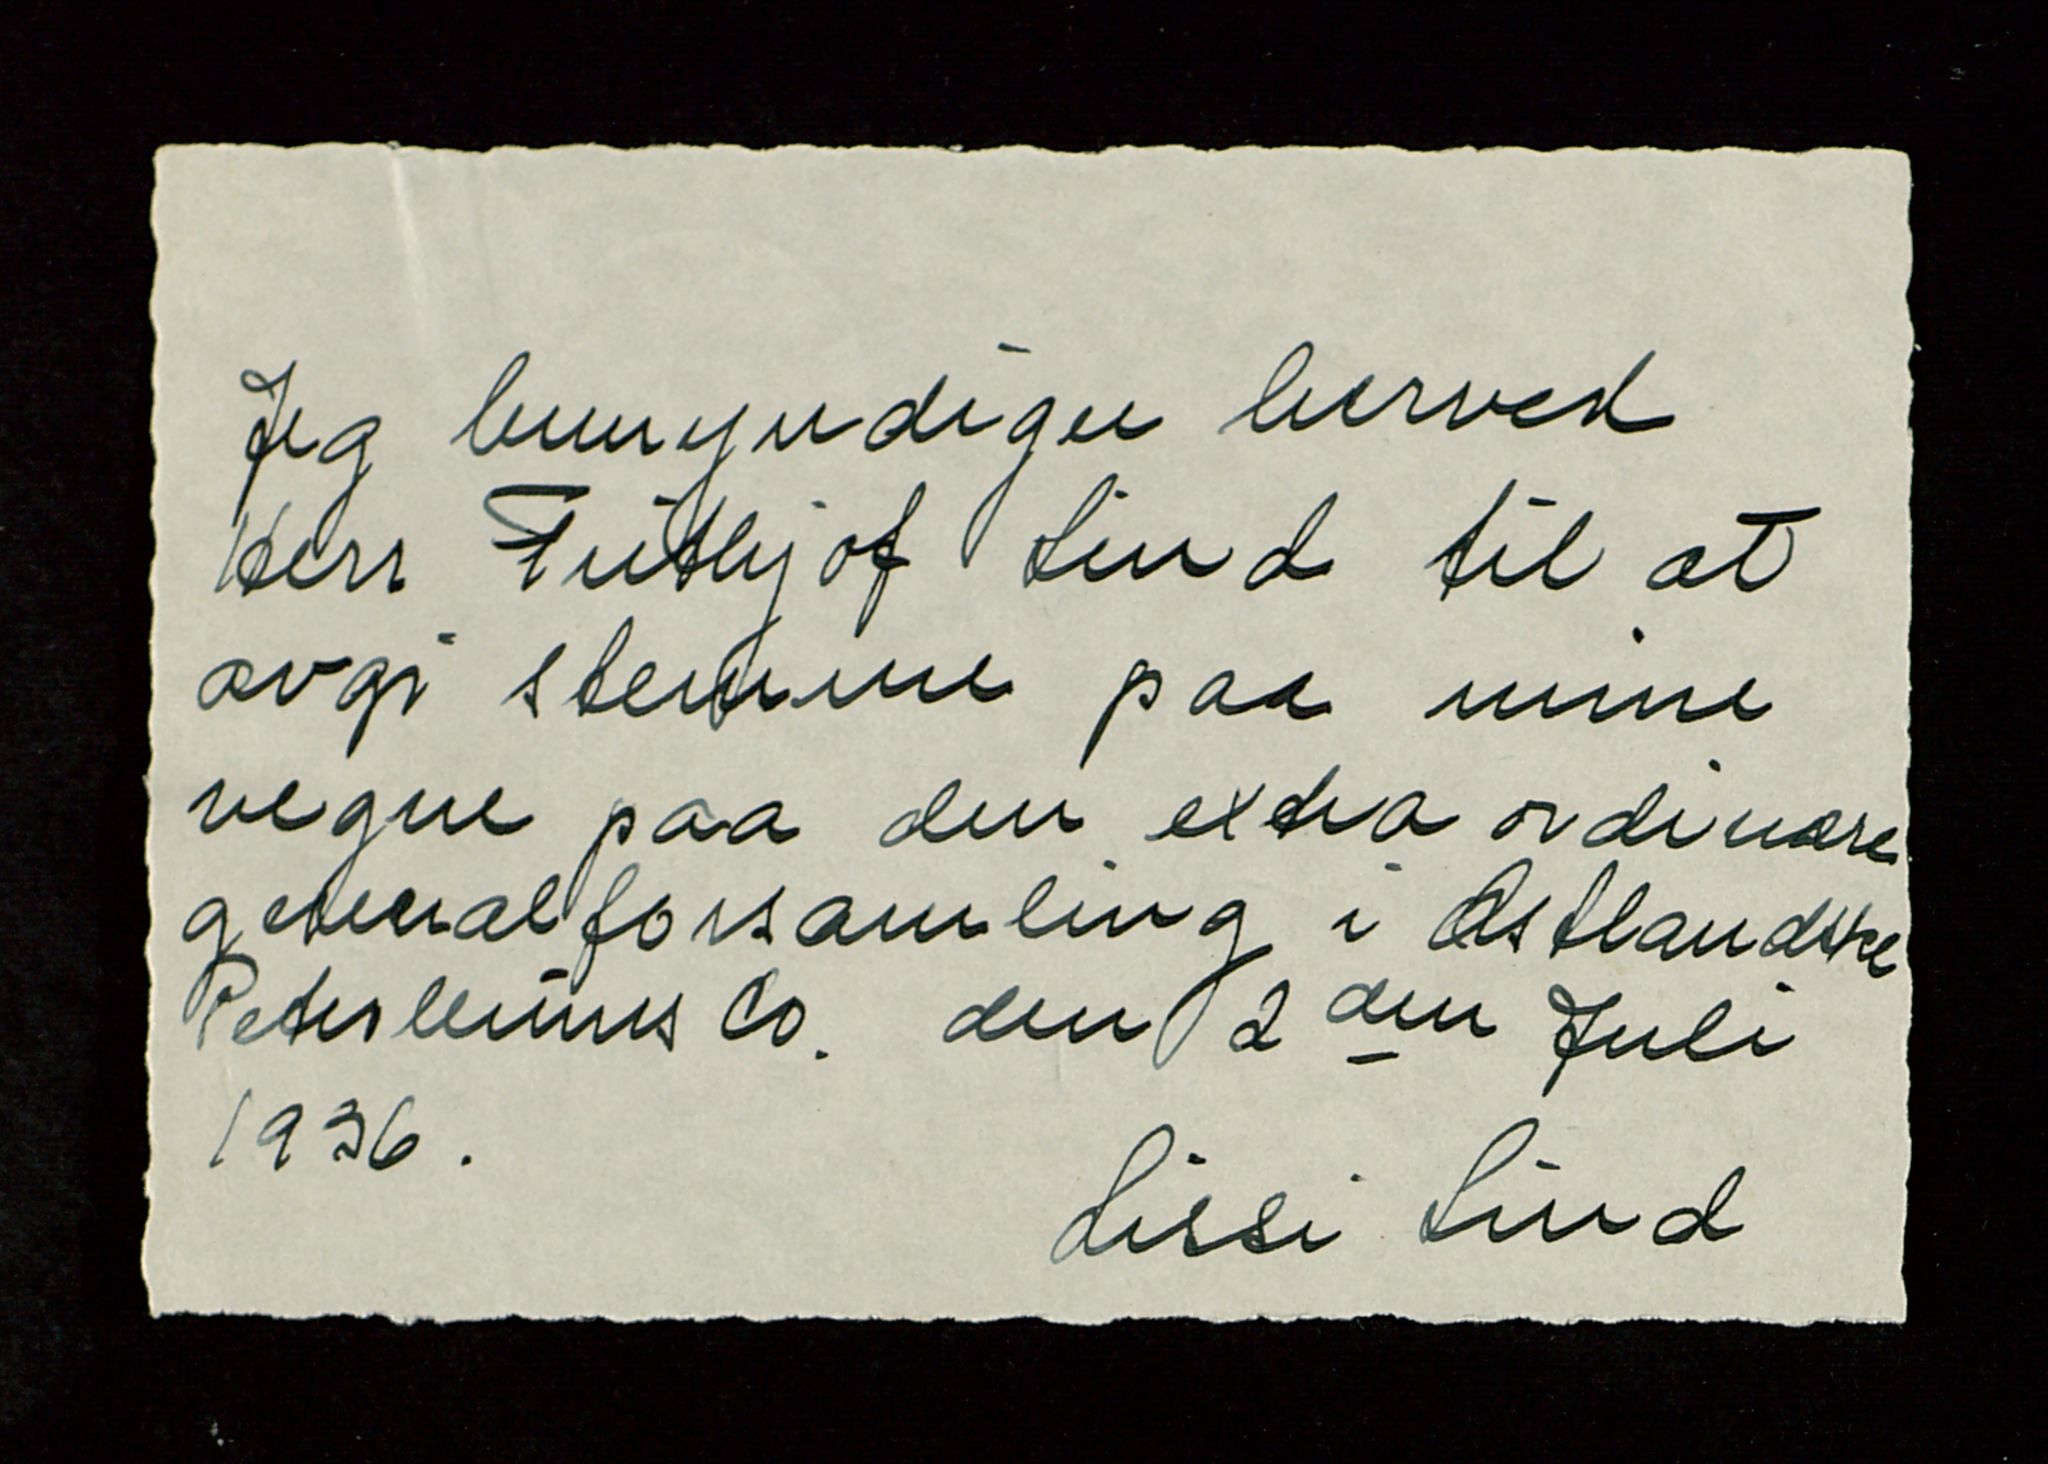 Jeg bemyndiger herved
Herr Frithjof Lind til at
avgi stemme paa mine
vegne paa den extra ordinære
generalforsamling i Østlandske
Petroleums Co. den 2 den Juli
1936.
Lissi Lind